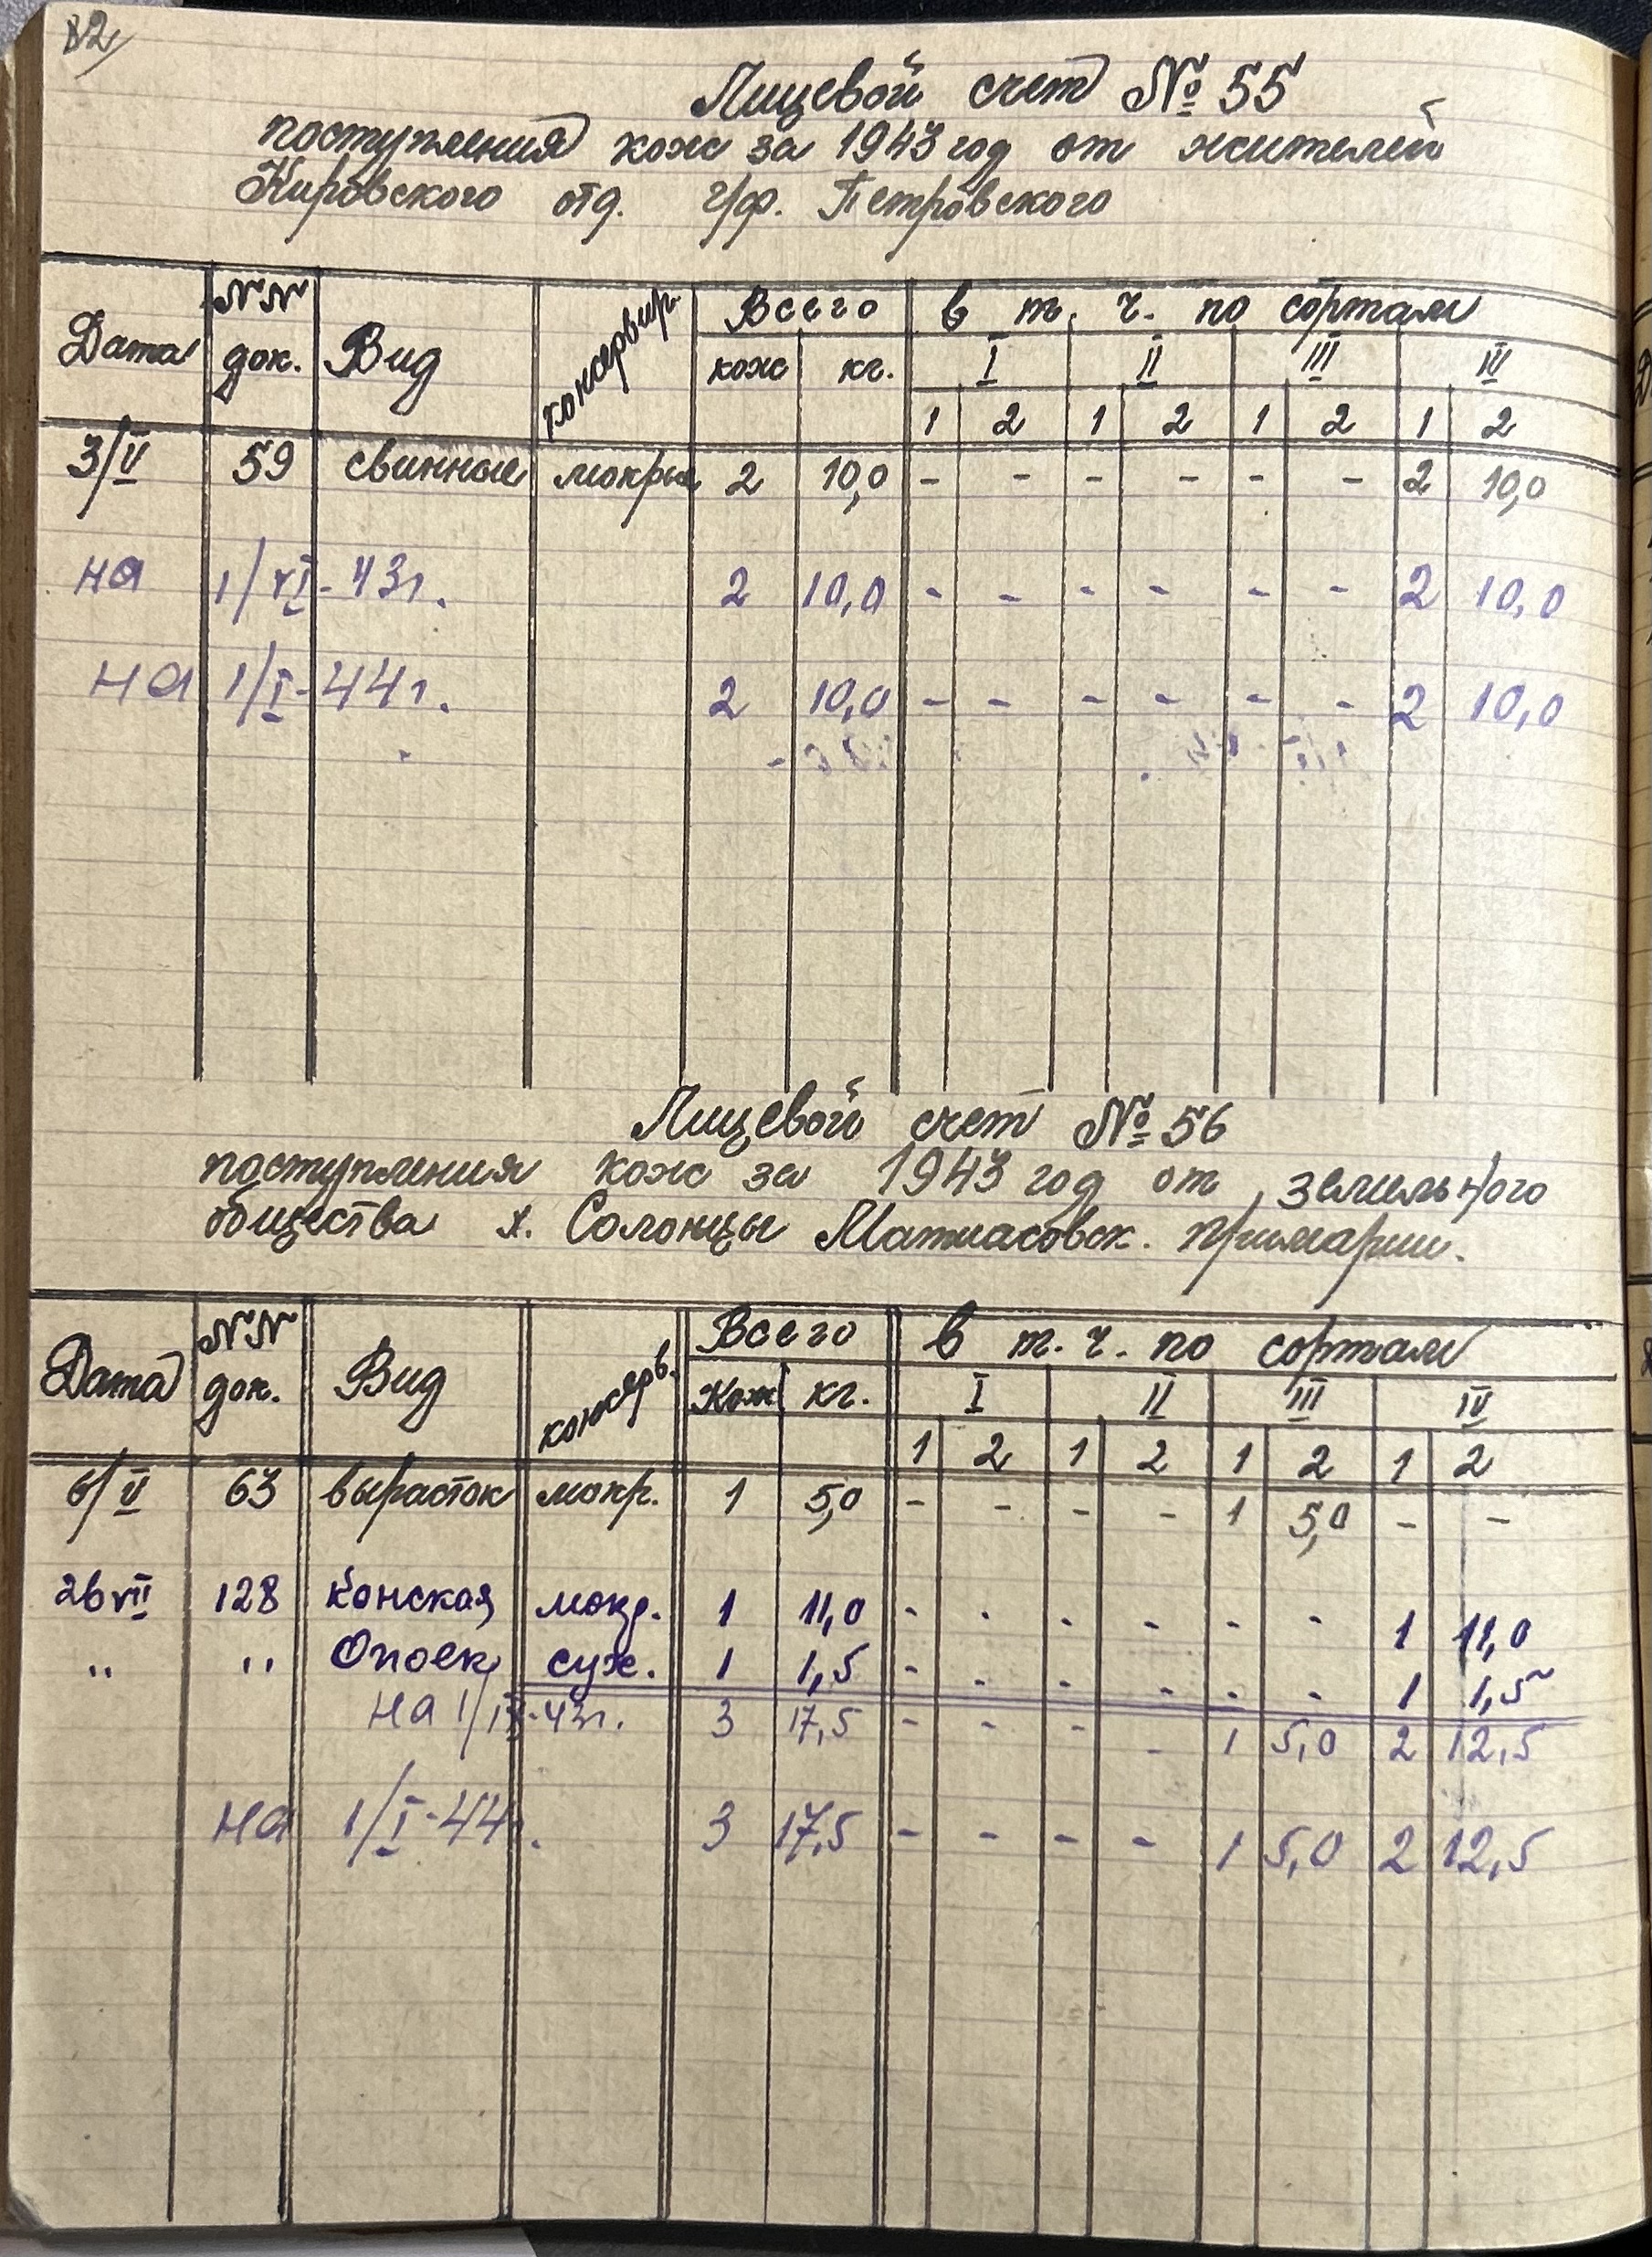 82
Лицевой счет № 55
поступления кож за 1943 год от жителей
Кировского отд. г/ф. Петровского
Дата NN док. Вид консервир. Всего в т. ч. по сортам
кож кг. I II III IV
1 2 1 2 1 2 1 2
3/V 59 свинные мокрые 2 10,0 - - - - - - 2 10,0
на 1/VI-43г. 2 10,0 - - - - - - 2 10,0
на 1/I-44г. 2 10,0 - - - - - - 2 10,0
Лицевой счет № 56
поступления кож за 1943 год от земельного
общества х. Солонцы Матиасовск. примарии.
Дата NN док. Вид консерв. Всего в т. ч. по сортам
Кож кг. I II III IV
1 2 1 2 1 2 1 2
6/V 63 вырасток мокр. 1 5,0 - - - - 1 5,0 - -
26 VII 128 Конская мокр. 1 11,0 - - - - - - 1 11,0
" " Опоек сух. 1 1,5 - - - - - - 1 1,5
на 43г. 3 17,5 - - - - 1 5,0 2 12,5
на 1/I-44г. 3 17,5 - - - - 1 5,0 2 12,5